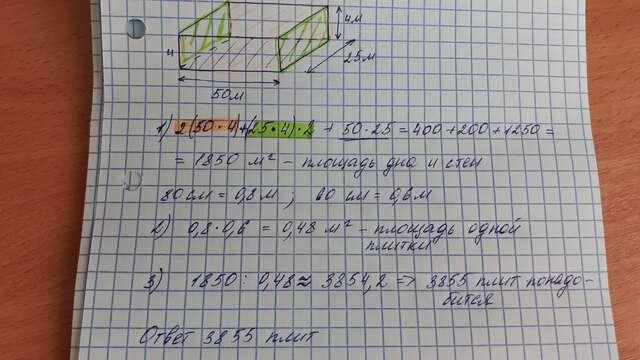 4м
4
25м
50м
1) 2(50·4)+(25·4)·2 + 50·25 = 400+200+1250 =
= 1850 м² - площадь дна и стен
80 см = 0,8 м ; 60 см = 0,6 м
2) 0,8·0,6 = 0,48 м² - площадь одной
плитки
3) 1850 : 0,48 ≈ 3854,2 => 3855 плит понадо-
бится
Ответ 3855 плит